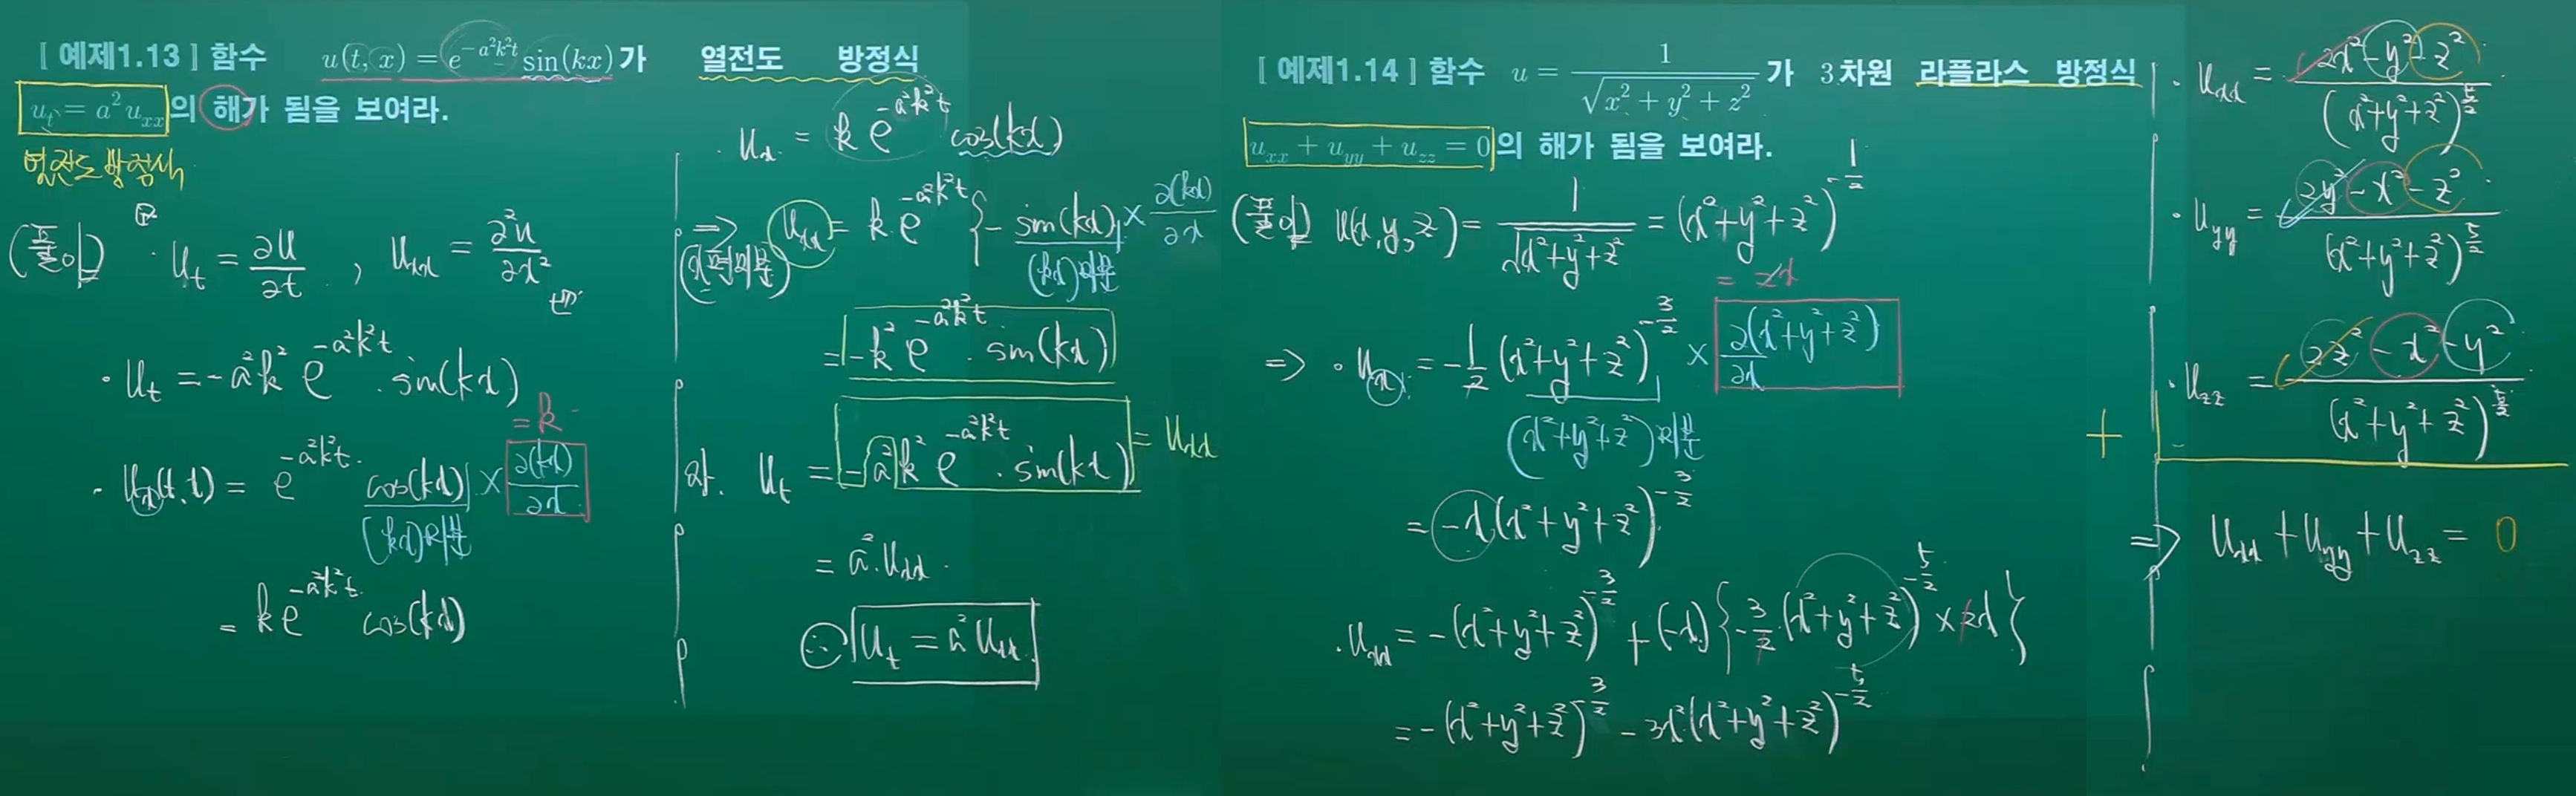 [예제1.13] 함수 u(t, x) = e^{-a²k²t} sin(kx)가 열전도 방정식
u_t = a² u_xx 의 해가 됨을 보여라.
열전도 방정식
(풀이) · u_t = ∂u/∂t , u_xx = ∂²u/∂x²
· u_t = -a²k² e^{-a²k²t} · sin(kx)
= k
· u_x(t,x) = e^{-a²k²t} cos(kx) × ∂(kx)/∂x
(kx)미분
= k e^{-a²k²t} cos(kx)
· u_x = k e^{-a²k²t} cos(kx)
=> u_xx = k e^{-a²k²t} { - sin(kx) × ∂(kx)/∂x
(kx)미분
= -k² e^{-a²k²t} · sin(kx)
u_t = -a²k² e^{-a²k²t} · sin(kx) = u_xx
= a² · u_xx .
∴ u_t = a² u_xx
[예제1.14] 함수 u = 1/√(x² + y² + z²) 가 3차원 라플라스 방정식
u_xx + u_yy + u_zz = 0 의 해가 됨을 보여라.
(풀이) u(x,y,z) = 1/√(x²+y²+z²) = (x²+y²+z²)^{-1/2}
= 2x
=> · u_x = -1/2 (x²+y²+z²)^{-3/2} × ∂(x²+y²+z²)/∂x
(x²+y²+z²)미분
= -x(x²+y²+z²)^{-3/2}
· u_xx = -(x²+y²+z²)^{-3/2} + (-x){ -3/2 (x²+y²+z²)^{-5/2} × 2x }
= -(x²+y²+z²)^{-3/2} - 3x²(x²+y²+z²)^{-5/2}
· u_xx = (2x²-y²-z²)/(x²+y²+z²)^{5/2}
· u_yy = (2y²-x²-z²)/(x²+y²+z²)^{5/2}
· u_zz = (2z²-x²-y²)/(x²+y²+z²)^{5/2}
+
=> u_xx + u_yy + u_zz = 0